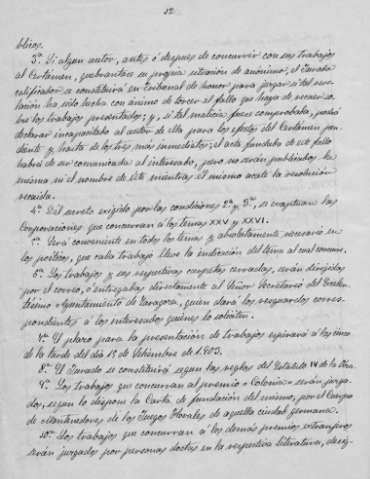 52
blicos.
3ª Si algun autor, antes ó despues de concurrir con sus trabajos
al Certámen, quebrantase su propia situacion de anónimo, el Jurado
calificador se constituirá en Tribunal de honor para juzgar si tal reve-
lación ha sido hecha con animo de torcer el fallo que haya de recaer so-
bre los trabajos presentados; y, si tal malicia fuese comprobada, podrá
declarar incapacitado al autor de ella para los efectos del Certámen pen-
diente y hasta de los tres mas inmediatos; el acta fundada de este fallo
habrá de ser comunicada al interesado, pero no serán publicados la
misma ni el nombre de éste mientras el mismo acate la resolución
recaida.
4ª Del secreto exigido por las condiciones 2ª y 3ª, se exceptuan las
Corporaciones que concurran á los temas XXV y XXVI.
5ª Será conveniente en todos los temas y absolutamente necesario en
los poéticos, que cada trabajo lleve la indicación del tema al cual concurre.
6ª Los trabajos y sus respectivas carpetas cerradas, serán dirigidos
por el correo, ó entregados directamente al Señor Secretario del Excelen-
tísimo Ayuntamiento de Zaragoza, quien dará los resguardos corres-
pondientes á los interesados quienes lo soliciten.
7ª El plazo para la presentación de trabajos espirará á las cinco
de la tarde del dia 15 de Setiembre de 1903.
8ª El Jurado se constituirá segun las reglas del Estatuto
9ª Los trabajos que concurran al premio «Colonia» serán juzga-
dos, segun lo dispone la Carta de fundación del mismo, por el Cuerpo
de Mantenedores de los Juegos Florales de aquella ciudad germana.
10ª Los trabajos que concurran á los demás premios extranjeros
serán juzgados por personas doctas en la respectiva literatura, desig-